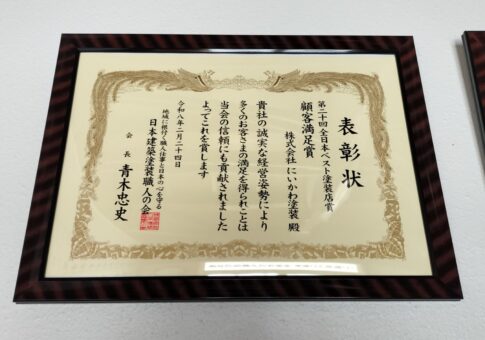 表彰状
第二十回全日本ベスト塗装店賞
顧客満足賞
株式会社 にいかわ塗装 殿
貴社の誠実な経営姿勢により
多くのお客さまの満足を得られたことは
当会の信頼にも貢献されました
よってこれを賞します
令和八年二月二十四日
地域に根付く職人仕事と日本の心を守る
日本建築塗装職人の会
会長 青木忠史